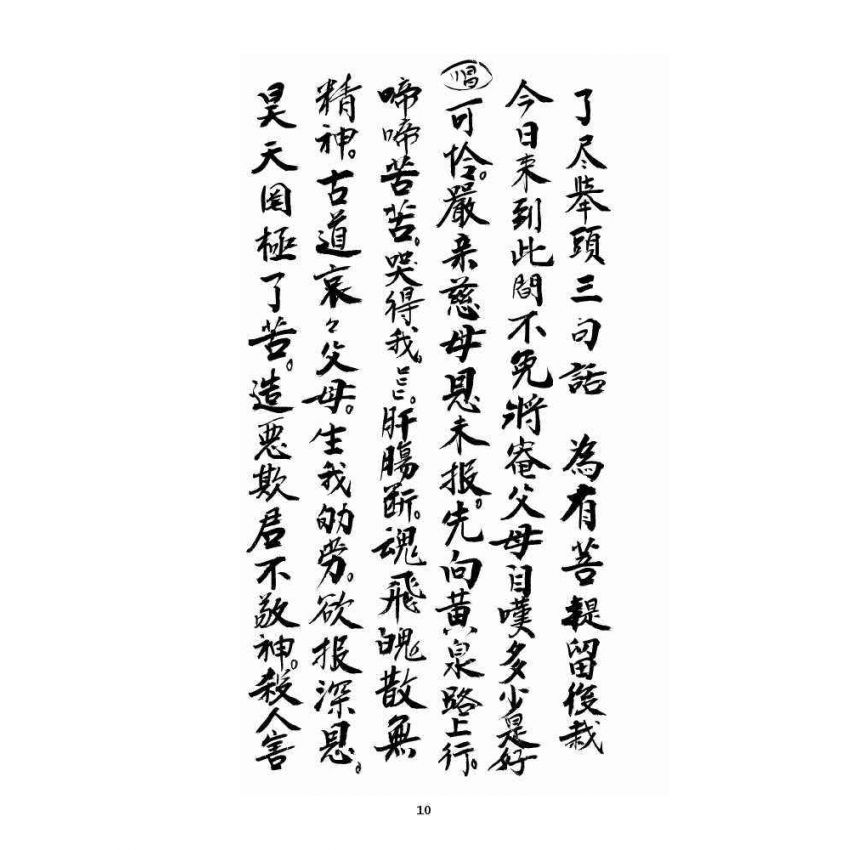 了尽舉頭三句話　為有菩提留後栽
今日来到此間不免將爹父母自嘆多少是好
唱
可怜。嚴亲慈母恩未报。先向黄泉路上行。
啼啼苦苦。哭得我。肝腸断。魂飛魄散無
精神。古道哀々父母。生我劬劳。欲报深恩。
昊天罔極了苦。造悪欺君不敬神。殺人害
10